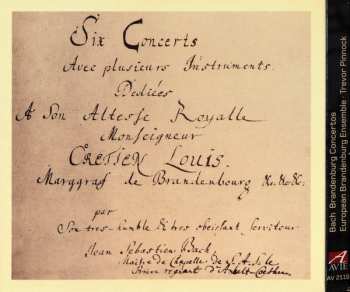 Six Concerts
Avec plusieurs Instruments.
Dediées
A Son Altesse Royalle
Monseigneur
CRETIEN LOUIS.
Marggraf de Brandenbourg &c:&c:&c:
par
Son tres-humble & tres obeissant Serviteur
Jean Sebastien Bach
Maitre de Chapelle de S. A. S. le
Prince regnant d'Anhalt-Coethen
Bach Brandenburg Concertos
European Brandenburg Ensemble Trevor Pinnock
AVIE
AV 2119